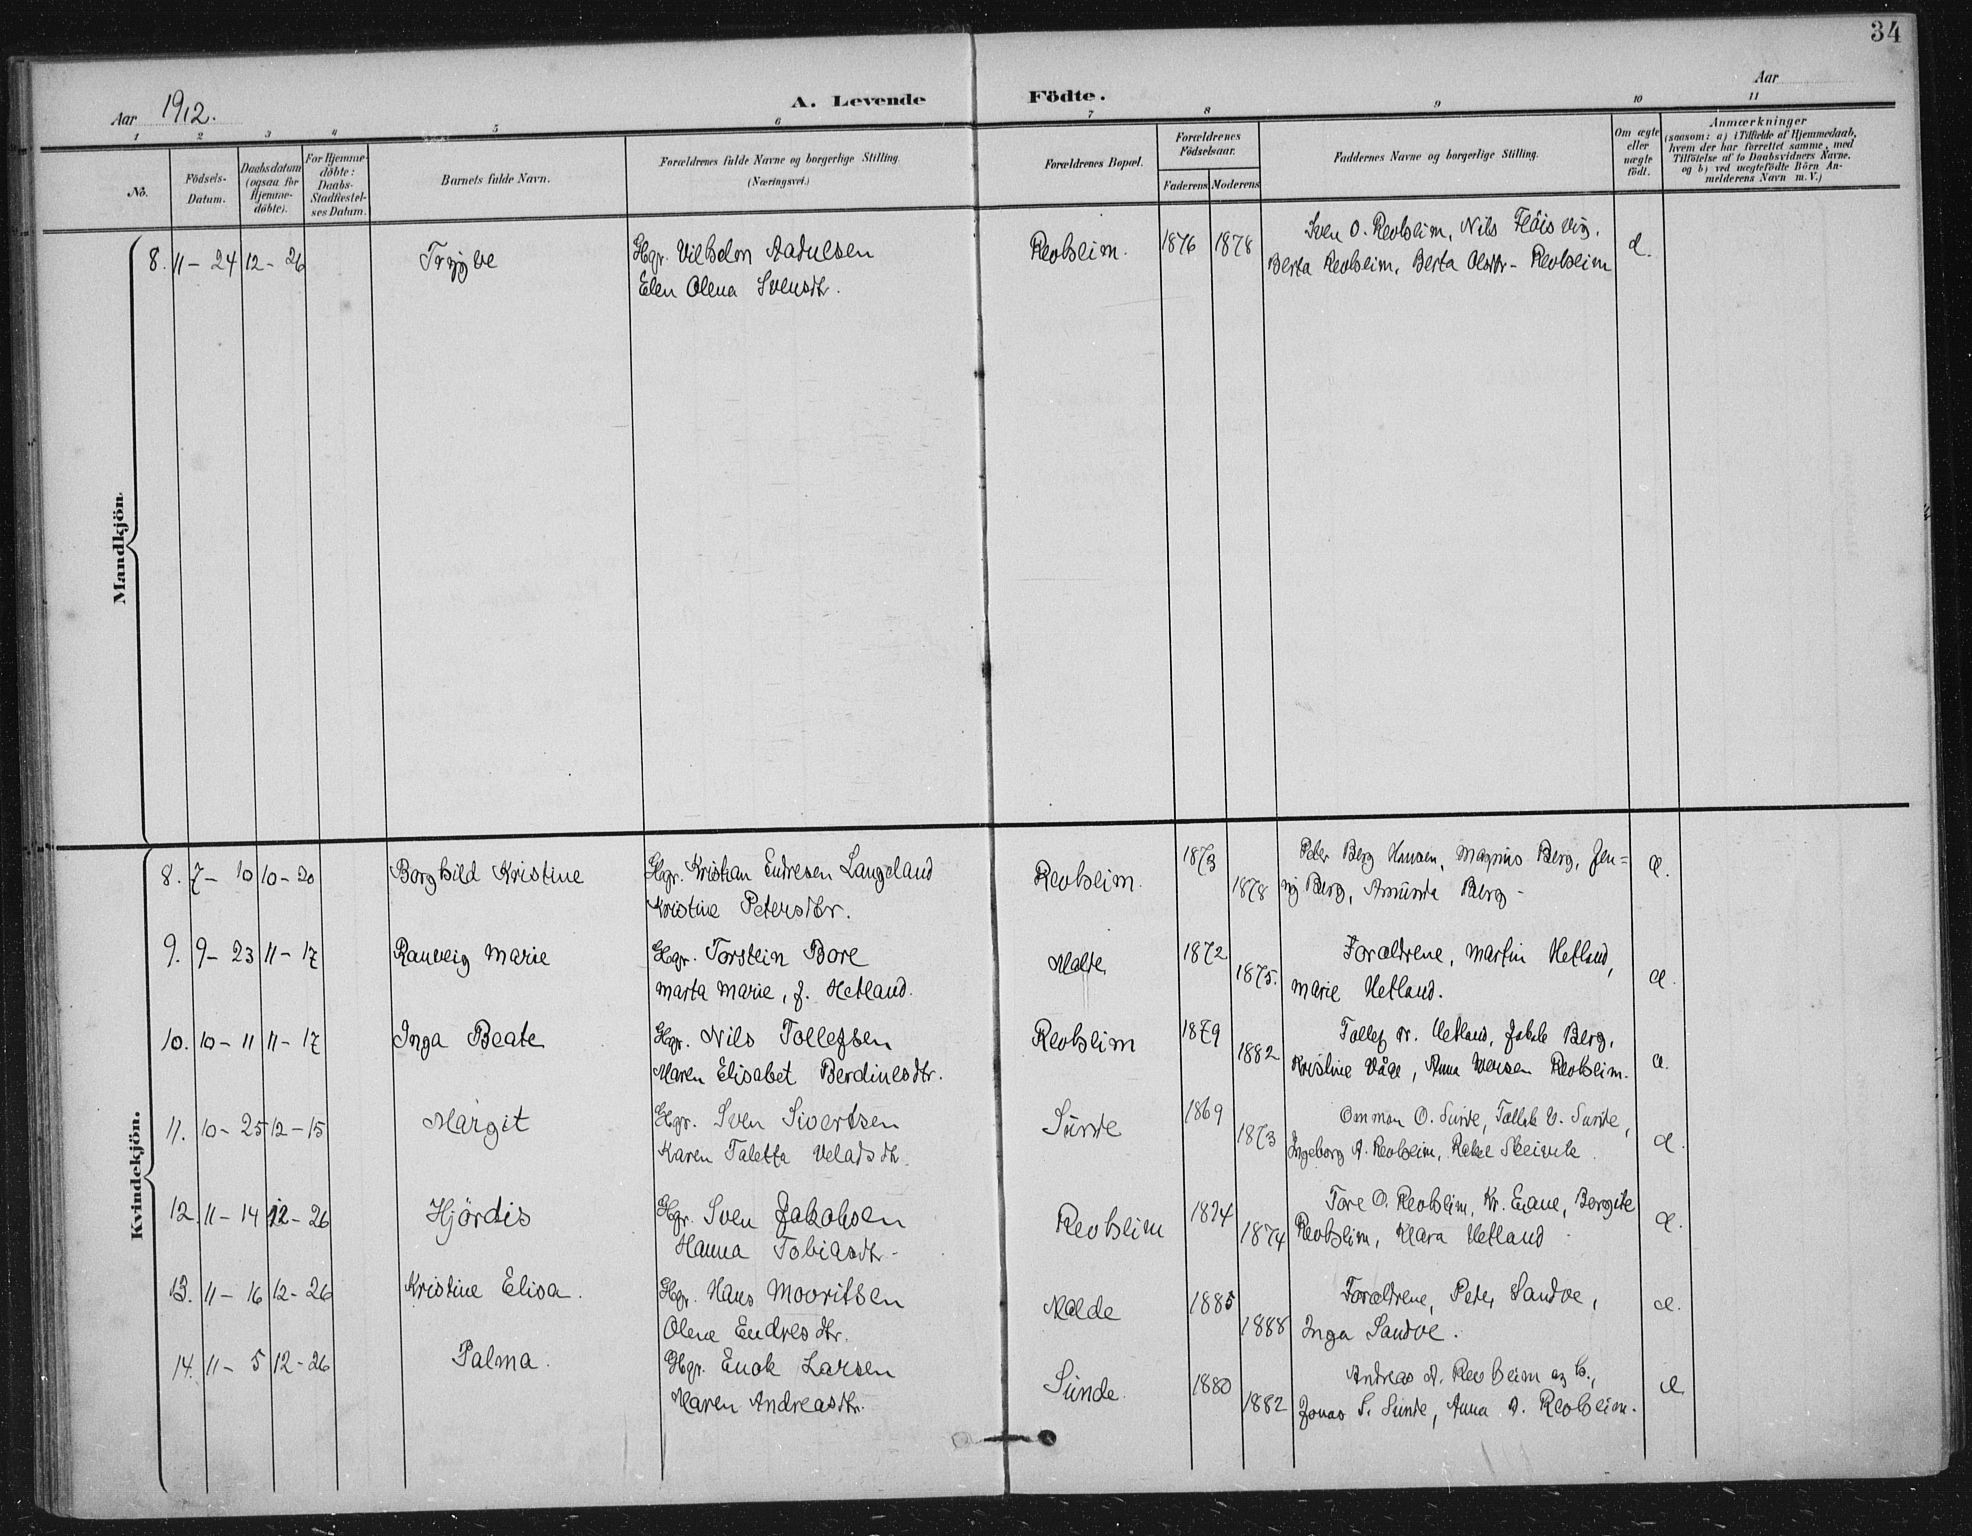 34
Aar 1912. A. Levende Födte. Aar
1 2 3 4 5 6 7 8 9 10 11
No. Födsels-Datum. Daabsdatum (ogsaa for Hjemme-döbte). For Hjemme-döbte: Daabs-Stadfæstel-ses Datum. Barnets fulde Navn. Forældrenes fulde Navne og borgerlige Stilling. (Næringsvei.) Forældrenes Bopæl. Forældrenes Födselsaar. Faderens Moderens Faddernes Navne og borgerlige Stilling. Om ægte eller uægte födt. Anmærkninger (saasom: a) i Tilfælde af Hjemmedaab, hvem der har forrettet samme, med Tilföielse af to Daabsvidners Navne, og b) ved uægtefödte Börn An-melderens Navn m. V.)
Mandkjön.
8. 11-24 12-26 Trygve Hgr. Vilhelm Aadnesen Revheim. 1876 1878 Sven O. Revheim, Nils
Elen Olena Svensdtr. Berta Revheim, Berta Olsdtr. Revheim æ.
Kvindekjön.
8. 7-10 10-20 Borghild Kristine Hgr. Kristian Endresen Langeland Revheim. 1873 Peder Berg Hansen, Magnus Berg, Jen-
Kristine Petersdtr. 1878 ny Berg, Amunda Berg - æ.
9. 9-23 11-17 Ranveig Marie Hgr. Torstein Bore Malde 1872 Forældrene, Martin Hetland,
Marta Marie, f. Hetland. 1875. Marie Hetland. æ.
10. 10-11 11-17 Inga Beate Hgr. Nils Tollefsen Revheim 1879 Tollef N. Hetland, Jakob Berg,
Maren Elisabet Berdinesdtr. 1882 Kristine Våge, Anna Revheim. æ.
11. 10-25 12-15 Margit Hgr. Sven Sivertsen Sunde 1869 Ommon O. Sunde, Tollak Sunde,
Karen Taletta Veladsdtr. 1873 Ingeborg A. Revheim, Rakel æ.
12. 11-14 12-26 Hjördis Hgr. Sven Jakobsen Revheim 1874 Tore O. Revheim, Kr. Berggite
Hanna Tobiasdtr. 1874 Revheim, Klara Hetland æ.
13. 11-16 12-26 Kristine Elisa. Hgr. Hans Mouritsen Malde 1885 Forældrene, Peter Sandve,
Olene Endresdtr. 1888 Inga Sandve. æ.
14. 11-5 12-26 Palma. Hgr. Enok Larsen Sunde. 1880 Andreas A. Revheim og h.,
Maren Andreasdtr. 1882 Jonas S. Sunde, Anna A. Revheim. æ